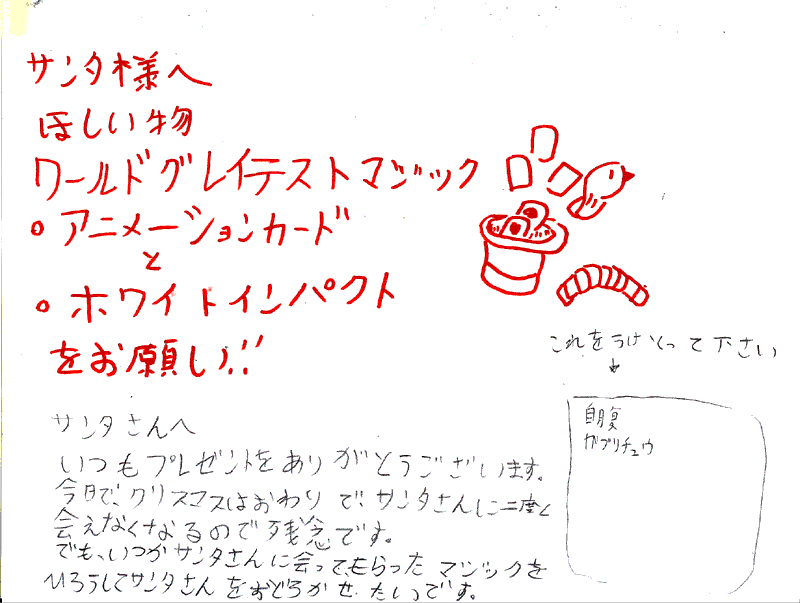 サンタ様へ
ほしい物
ワールドグレイテストマジック
・アニメーションカード
と
・ホワイトインパクト
をお願い!!
これをうけとって下さい
↓
自腹
ガブリチュウ
サンタさんへ
いつもプレゼントをありがとうございます。
今日で、クリスマスはおわりで、サンタさんに二度と
会えなくなるので残念です。
でも、いつかサンタさんに会って、もらったマジックを
ひろうしてサンタさんをおどろかせたいです。